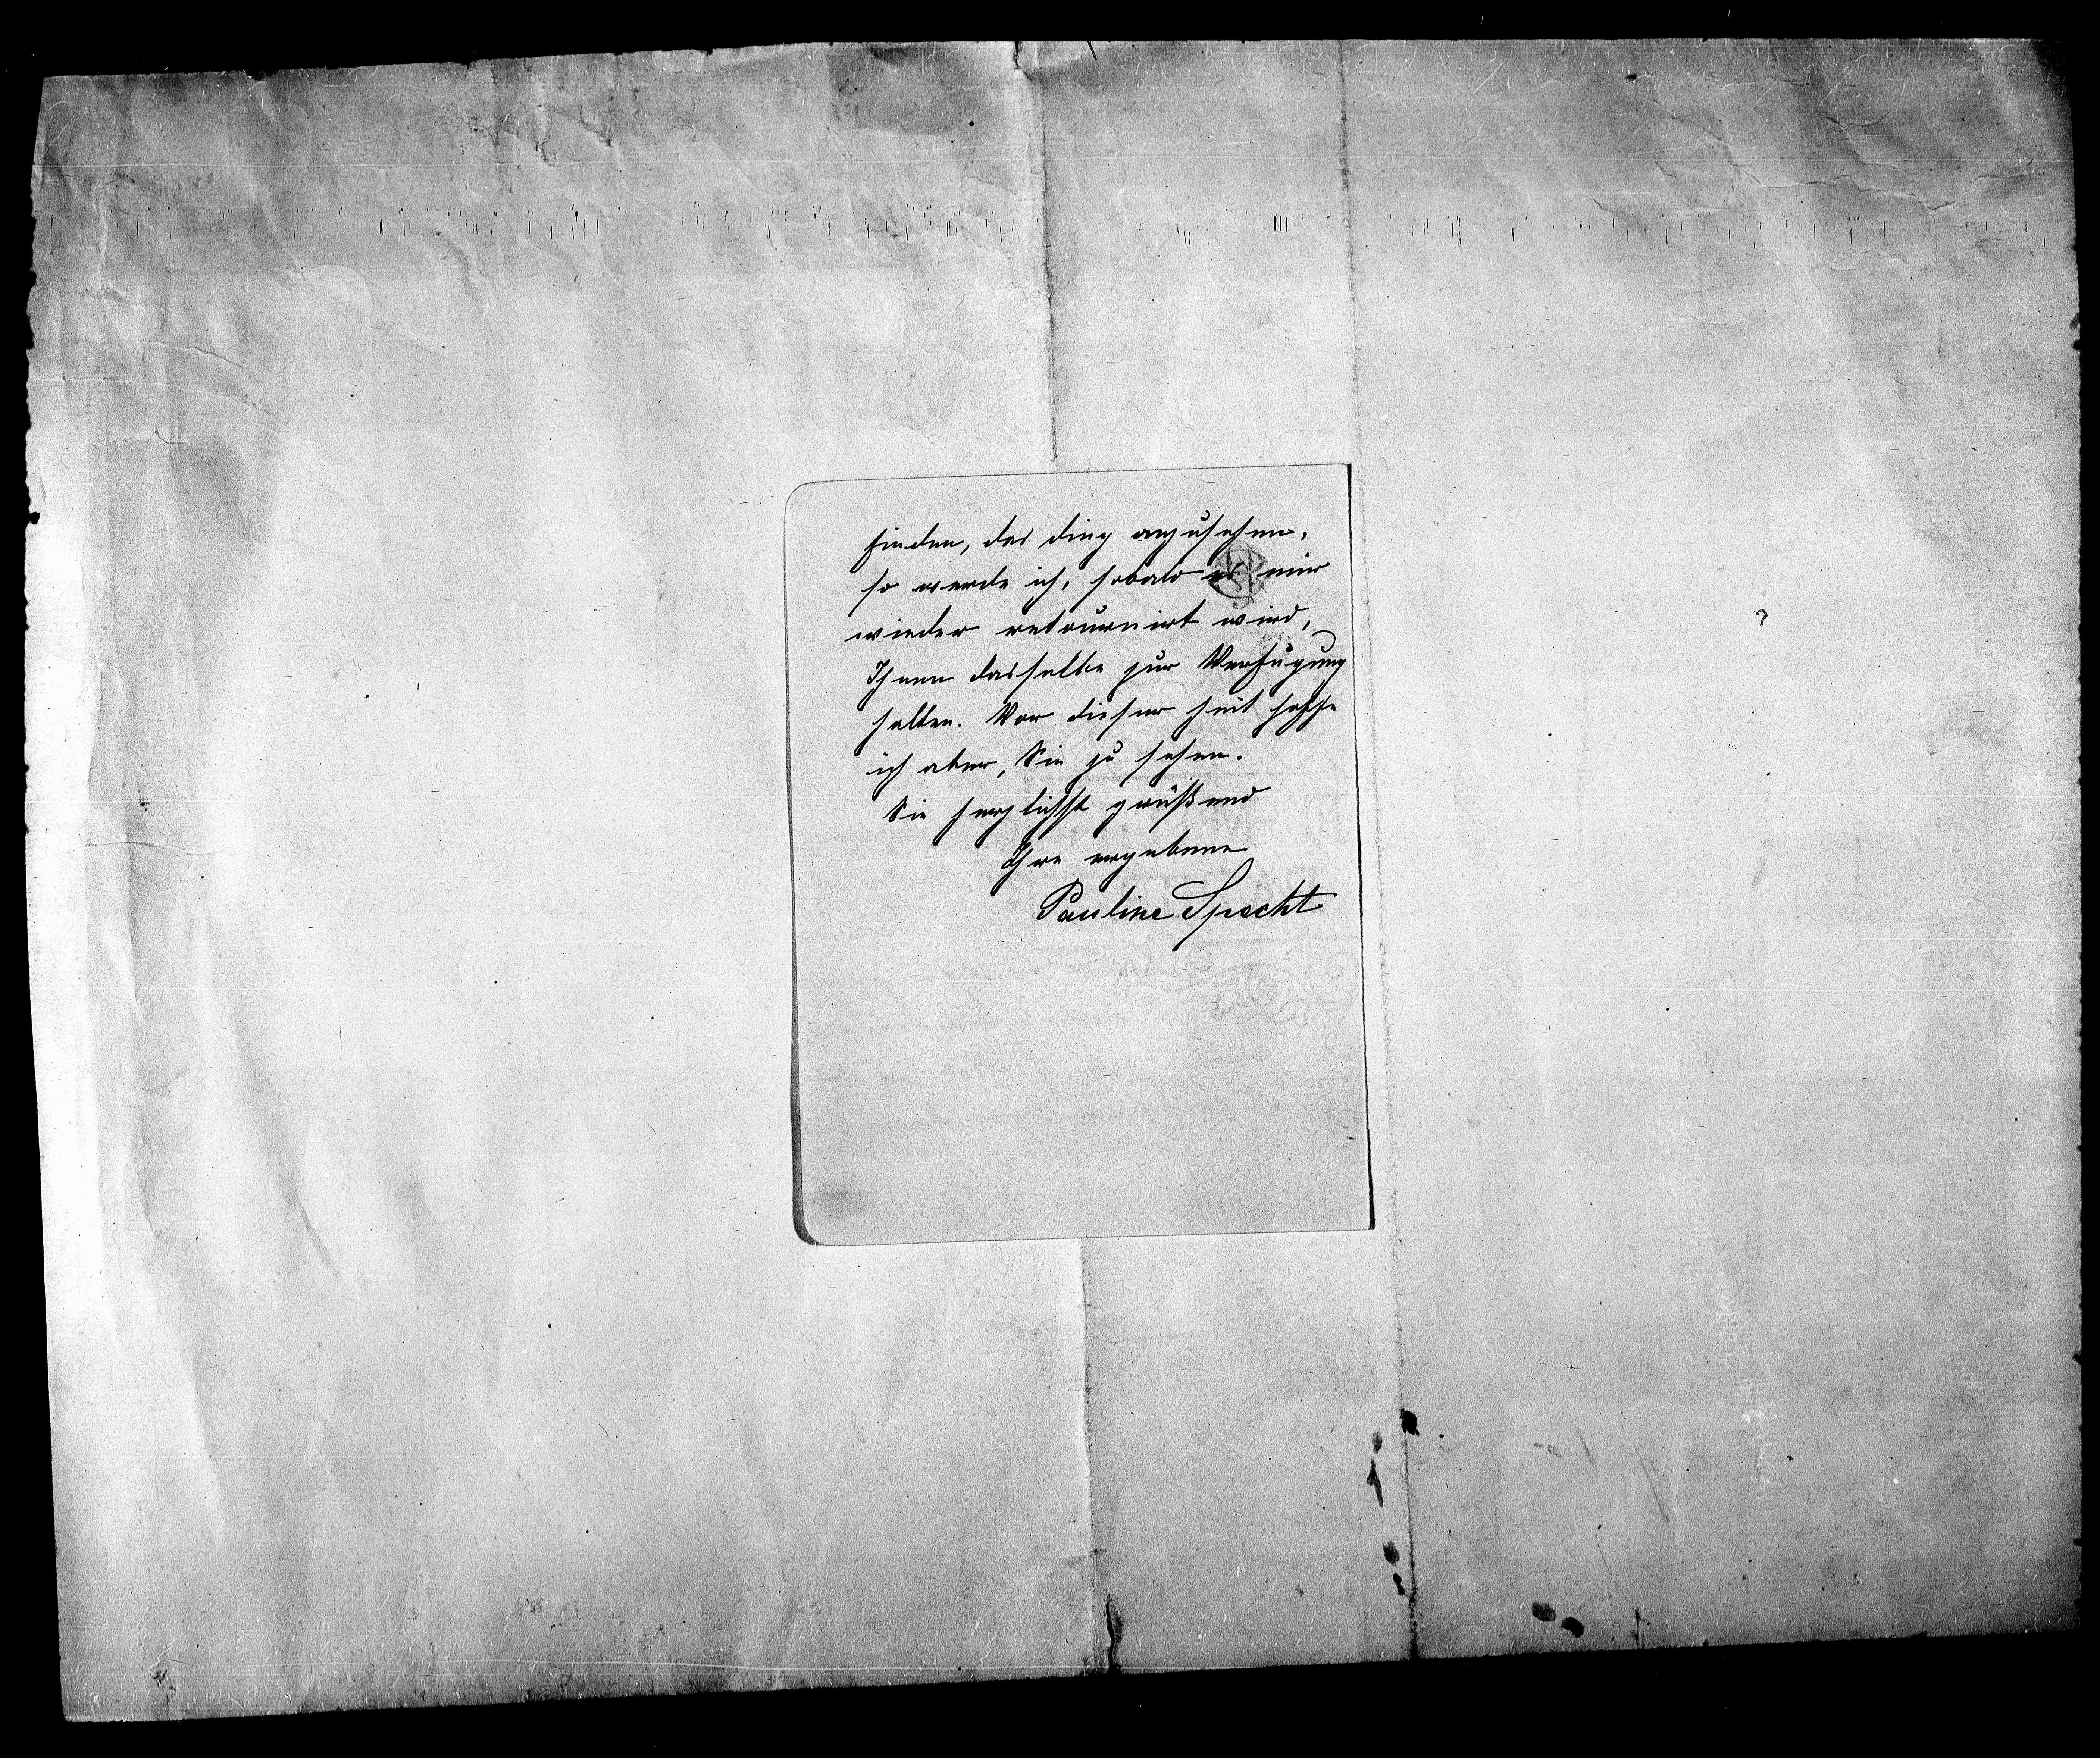 finden, das ding anzusehen,
so werde ich, sobald es mir
wieder retournirt wird,
Ihnen dasselbe zur Verfügung
halten. Vor dieser Zeit hoffe
ich aber, Sie zu sehen.
Sie herzlichst grüßend
Ihre ergebene
Pauline Specht